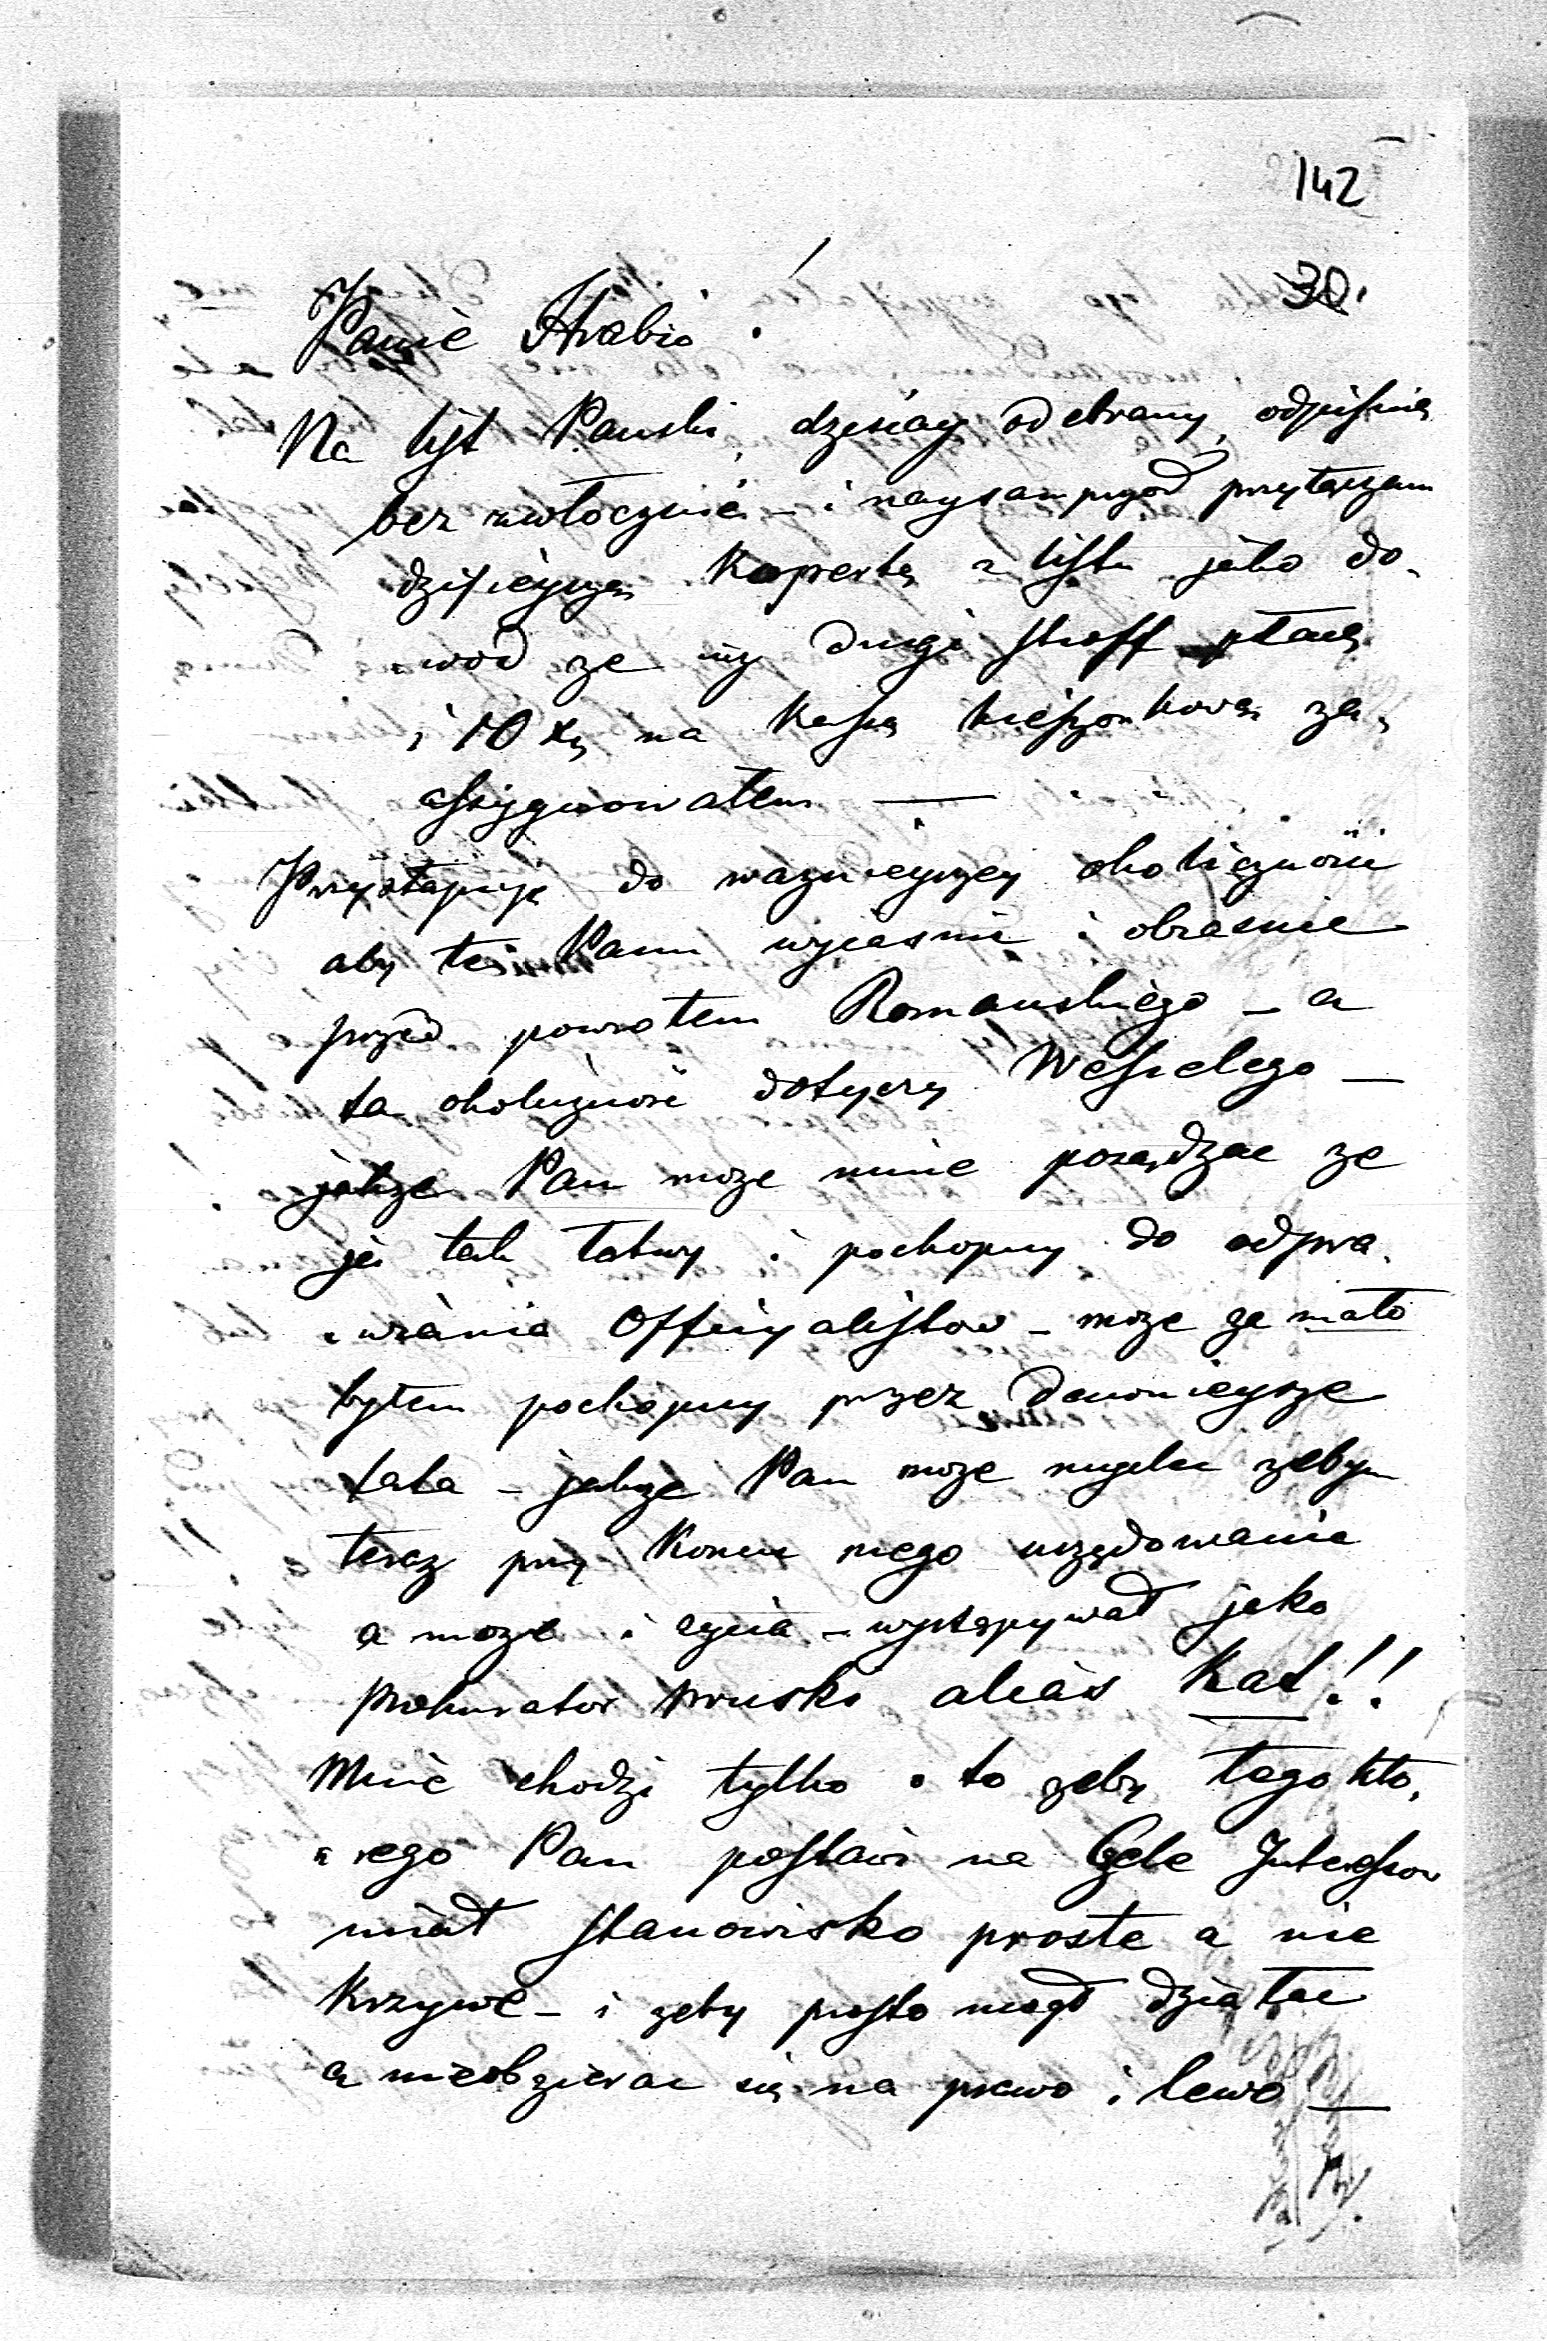 142
30.
Panie Hrabio!
Na list Pański, dzisiay odebrany, odpisuię
bez zwłocznie – i naysamprzod przyłączam
dzisieyszą Kopertę z listu jako do-
wod ze iuz drugi straff płacę
i 10 Xr na Kassę kieszonkową za-
assygnowałem —
Przystępuję do wazniejszey okoliczności
aby tei Panu wyiasnic i obiasnic
przed powrotem Romanskiego – a
ta okoliczność dotyczy Wessełego —
jakze Pan moze mnie posądzac ze
ja tak łatwy i pochopny do odpra-
wiania Officyalistow – moze ze mało
byłem pochopny przez dawnieysze
lata – jakze Pan moze mysleć zebym
teraz przy Koncu mego urzędowania
a moze i zycia – występywał jako
prokurator pruski alias Kat!!
Mnie chodzi tylko o to zeby tego któ-
rego Pan postawi na Czele Interessow
miał stanowisko proste a nie
Krzywe – i zeby prosto mogł działac
a nieobzierac się na prawo i lewo —